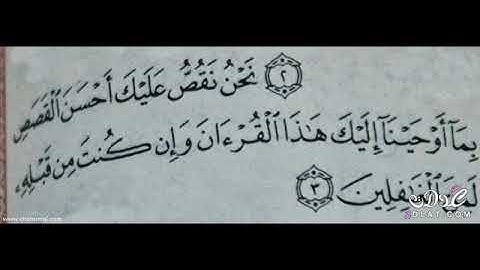 ٢ نَحْنُ نَقُصُّ عَلَيْكَ أَحْسَنَ ٱلْقَصَصِ
بِمَآ أَوْحَيْنَآ إِلَيْكَ هَٰذَا ٱلْقُرْءَانَ وَإِن كُنتَ مِن قَبْلِهِۦ
لَمِنَ ٱلْغَٰفِلِينَ ٣
عدلات
SDLAT.COM